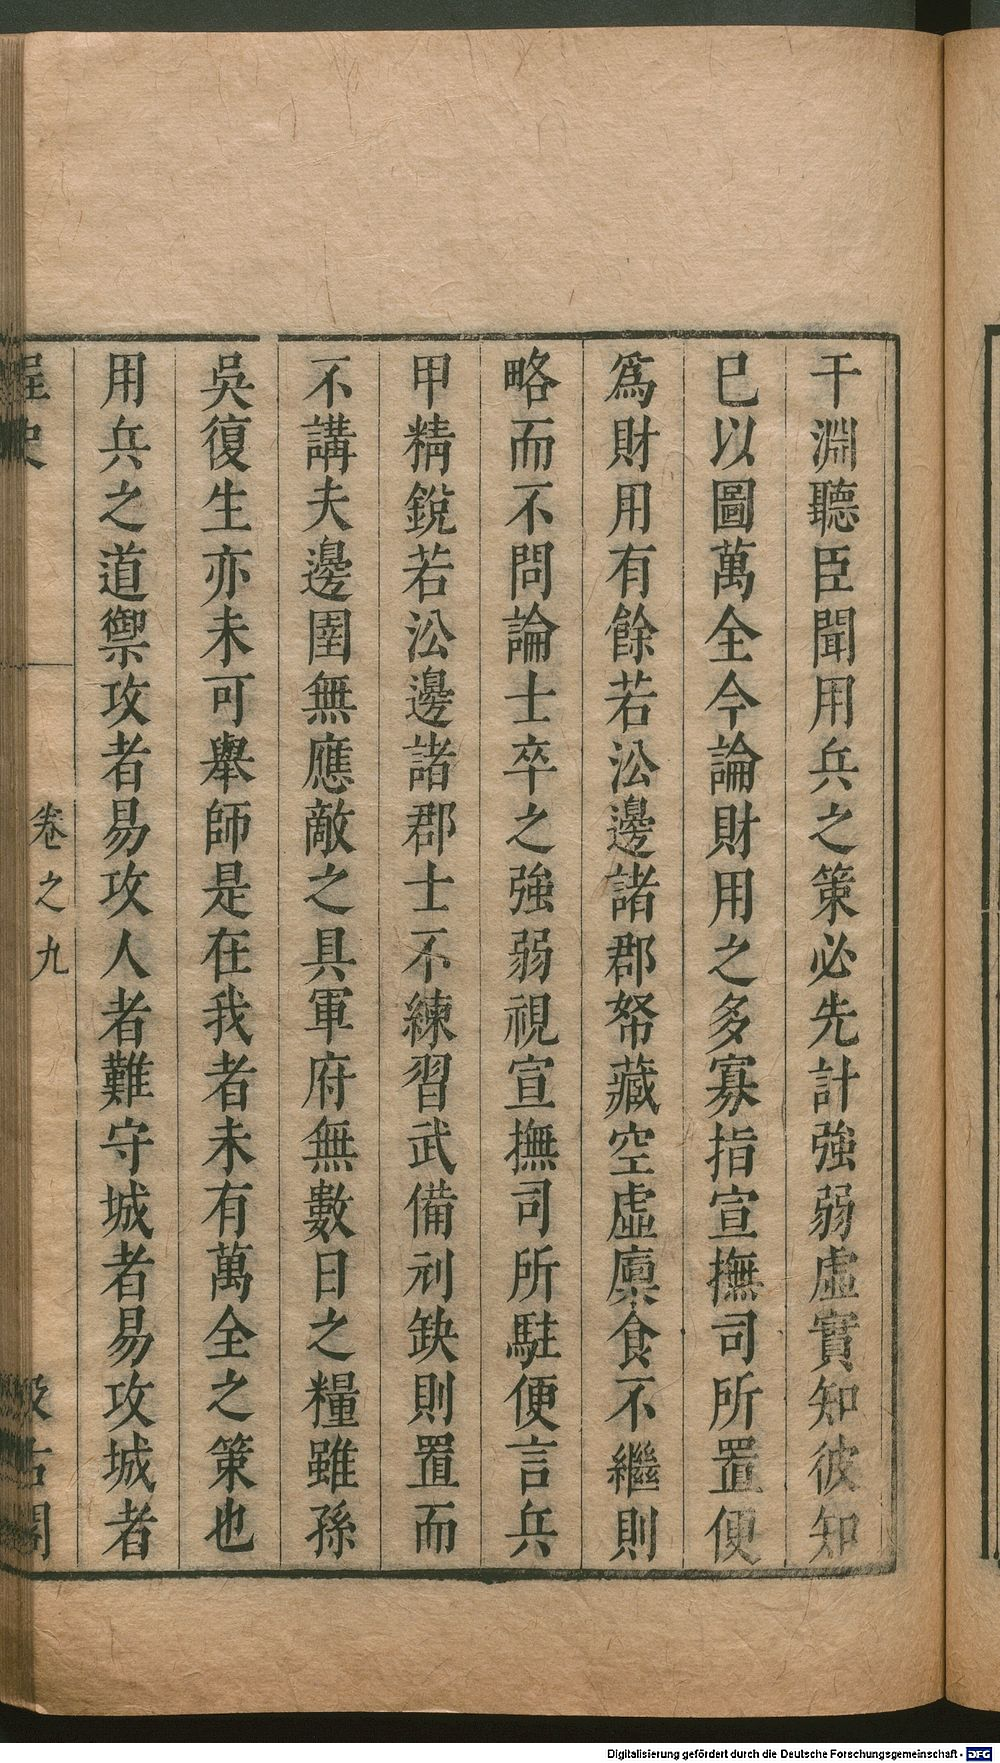 干淵聽臣聞用兵之策必先計強弱虛實知彼知
巳以圖萬全今論財用之多寡指宣撫司所置便
爲財用有餘若㳂邊諸郡帑藏空虛廩食不繼則
略而不問論士卒之強弱視宣撫司所駐便言兵
甲精銳若㳂邊諸郡士不練習武備刓缺則置而
不講夫邊圉無應敵之具軍府無數日之糧雖孫
吳復生亦未可舉師是在我者未有萬全之策也
用兵之道禦攻者易攻人者難守城者易攻城者
桯史
卷之九
汲古閣
Digitalisierung gefördert durch die Deutsche Forschungsgemeinschaft - DFG